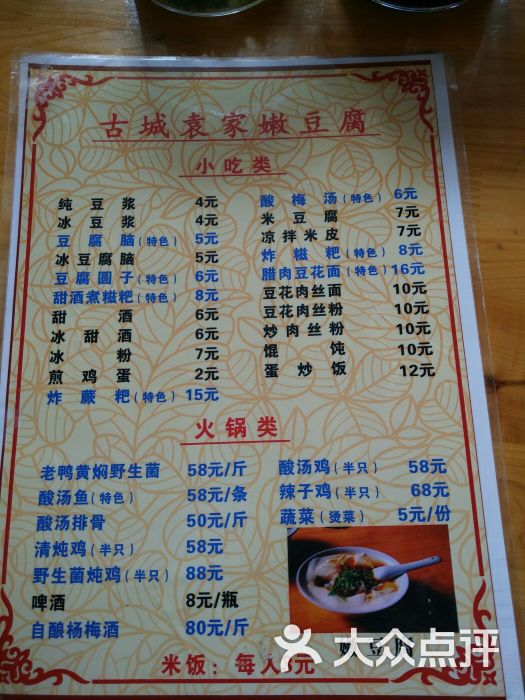 古城袁家嫩豆腐
小吃类
纯豆浆 4元
冰豆浆 4元
豆腐脑(特色) 5元
冰豆腐脑 5元
豆腐圆子(特色) 6元
甜酒煮糍粑(特色) 8元
甜酒 6元
冰甜酒 6元
冰粉 7元
煎鸡蛋 2元
炸蕨粑(特色) 15元
酸梅汤(特色) 6元
米豆腐 7元
凉拌米皮 7元
炸糍粑(特色) 8元
腊肉豆花面(特色) 16元
豆花肉丝面 10元
豆花肉丝粉 10元
炒肉丝粉 10元
馄饨 10元
蛋炒饭 12元
火锅类
老鸭黄焖野生菌 58元/斤
酸汤鱼(特色) 58元/条
酸汤排骨 50元/斤
清炖鸡(半只) 58元
野生菌炖鸡(半只) 88元
啤酒 8元/瓶
自酿杨梅酒 80元/斤
酸汤鸡(半只) 58元
辣子鸡(半只) 68元
蔬菜(烫菜) 5元/份
米饭:每人 元
大众点评